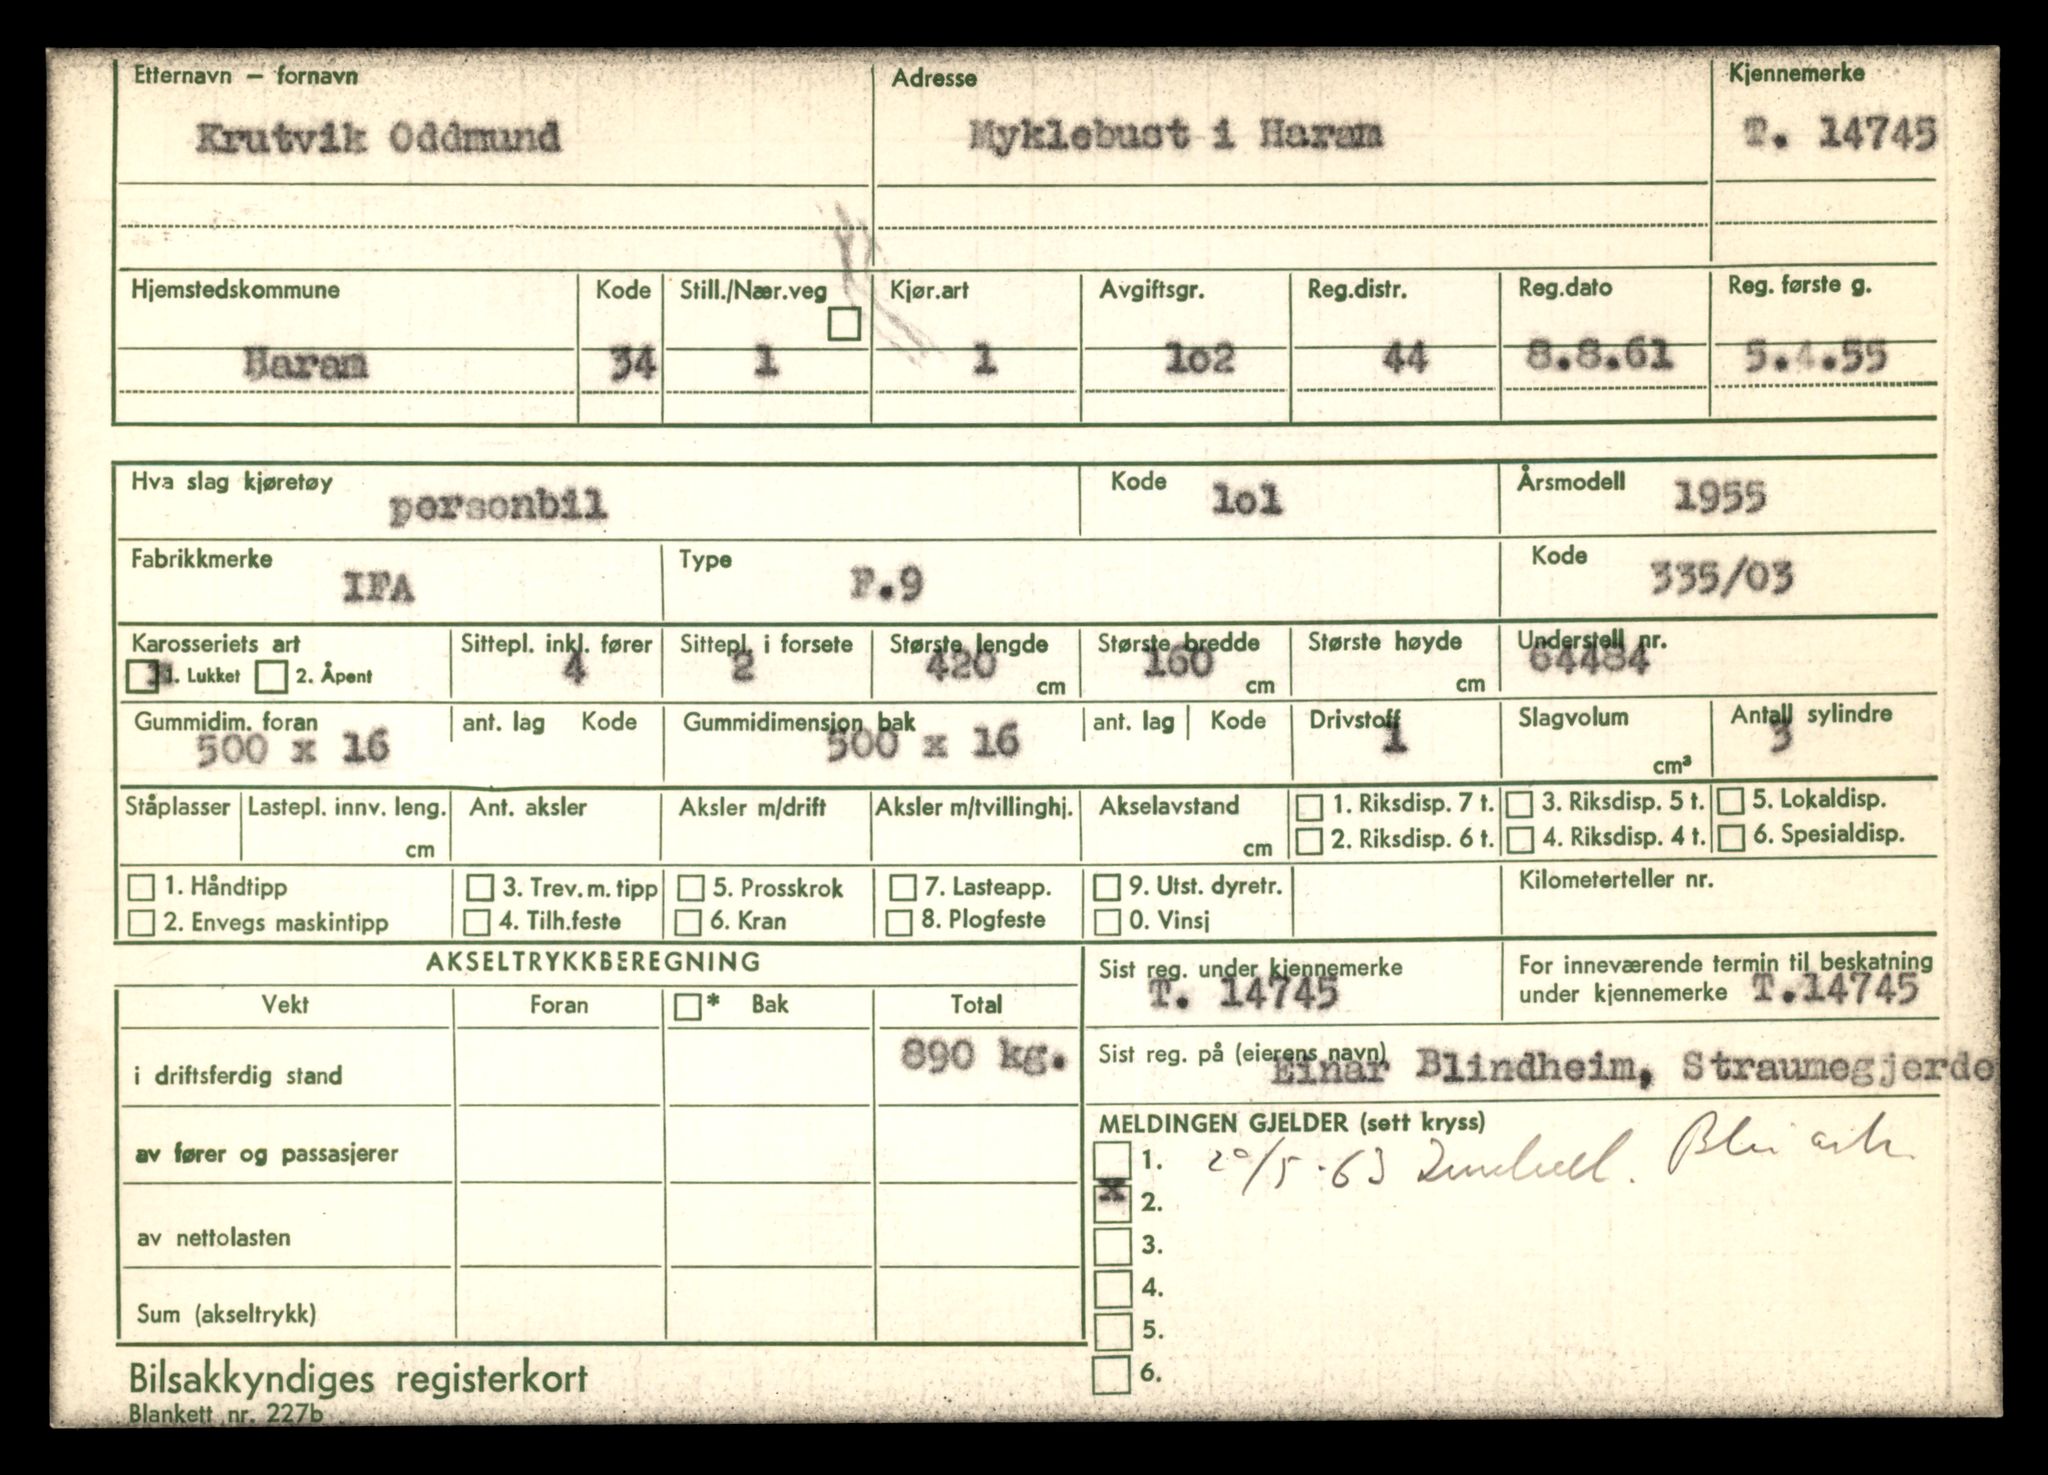 Etternavn – fornavn Adresse Kjennemerke
Krutvik Oddmund Myklebust i Haram T. 14745
Hjemstedskommune Kode Still./Nær.veg Kjør.art Avgiftsgr. Reg.distr. Reg.dato Reg. første g.
Haram 34 1 1 1o2 44 8.8.61 5.4.55
Hva slag kjøretøy personbil Kode 1o1 Årsmodell 1955
Fabrikkmerke IFA Type F.9 Kode 335/03
Karosseriets art Sittepl. inkl. fører Sittepl. i forsete Største lengde Største bredde Største høyde Understell nr.
x 1. Lukket 2. Åpent 4 2 420 cm 160 cm cm 64484
Gummidim. foran ant. lag Kode Gummidimensjon bak ant. lag Kode Drivstoff Slagvolum Antall sylindre
500 x 16 500 x 16 1 cm³ 3
Ståplasser Lastepl. innv. leng. Ant. aksler Aksler m/drift Aksler m/tvillinghj. Akselavstand 1. Riksdisp. 7 t. 3. Riksdisp. 5 t. 5. Lokaldisp.
cm cm 2. Riksdisp. 6 t. 4. Riksdisp. 4 t. 6. Spesialdisp.
1. Håndtipp 3. Trev. m. tipp 5. Prosskrok 7. Lasteapp. 9. Utst. dyretr. Kilometerteller nr.
2. Envegs maskintipp 4. Tilh.feste 6. Kran 8. Plogfeste 0. Vinsj
AKSELTRYKKBEREGNING
Vekt Foran * Bak Total
i driftsferdig stand 890 kg.
av fører og passasjerer
av nettolasten
Sum (akseltrykk)
Sist reg. under kjennemerke
T. 14745
For inneværende termin til beskatning
under kjennemerke T.14745
Sist reg. på (eierens navn)
Einar Blindheim, Straumegjerde
MELDINGEN GJELDER (sett kryss)
1. 20/5-63
x 2.
3.
4.
5.
6.
Bilsakkyndiges registerkort
Blankett nr. 227b